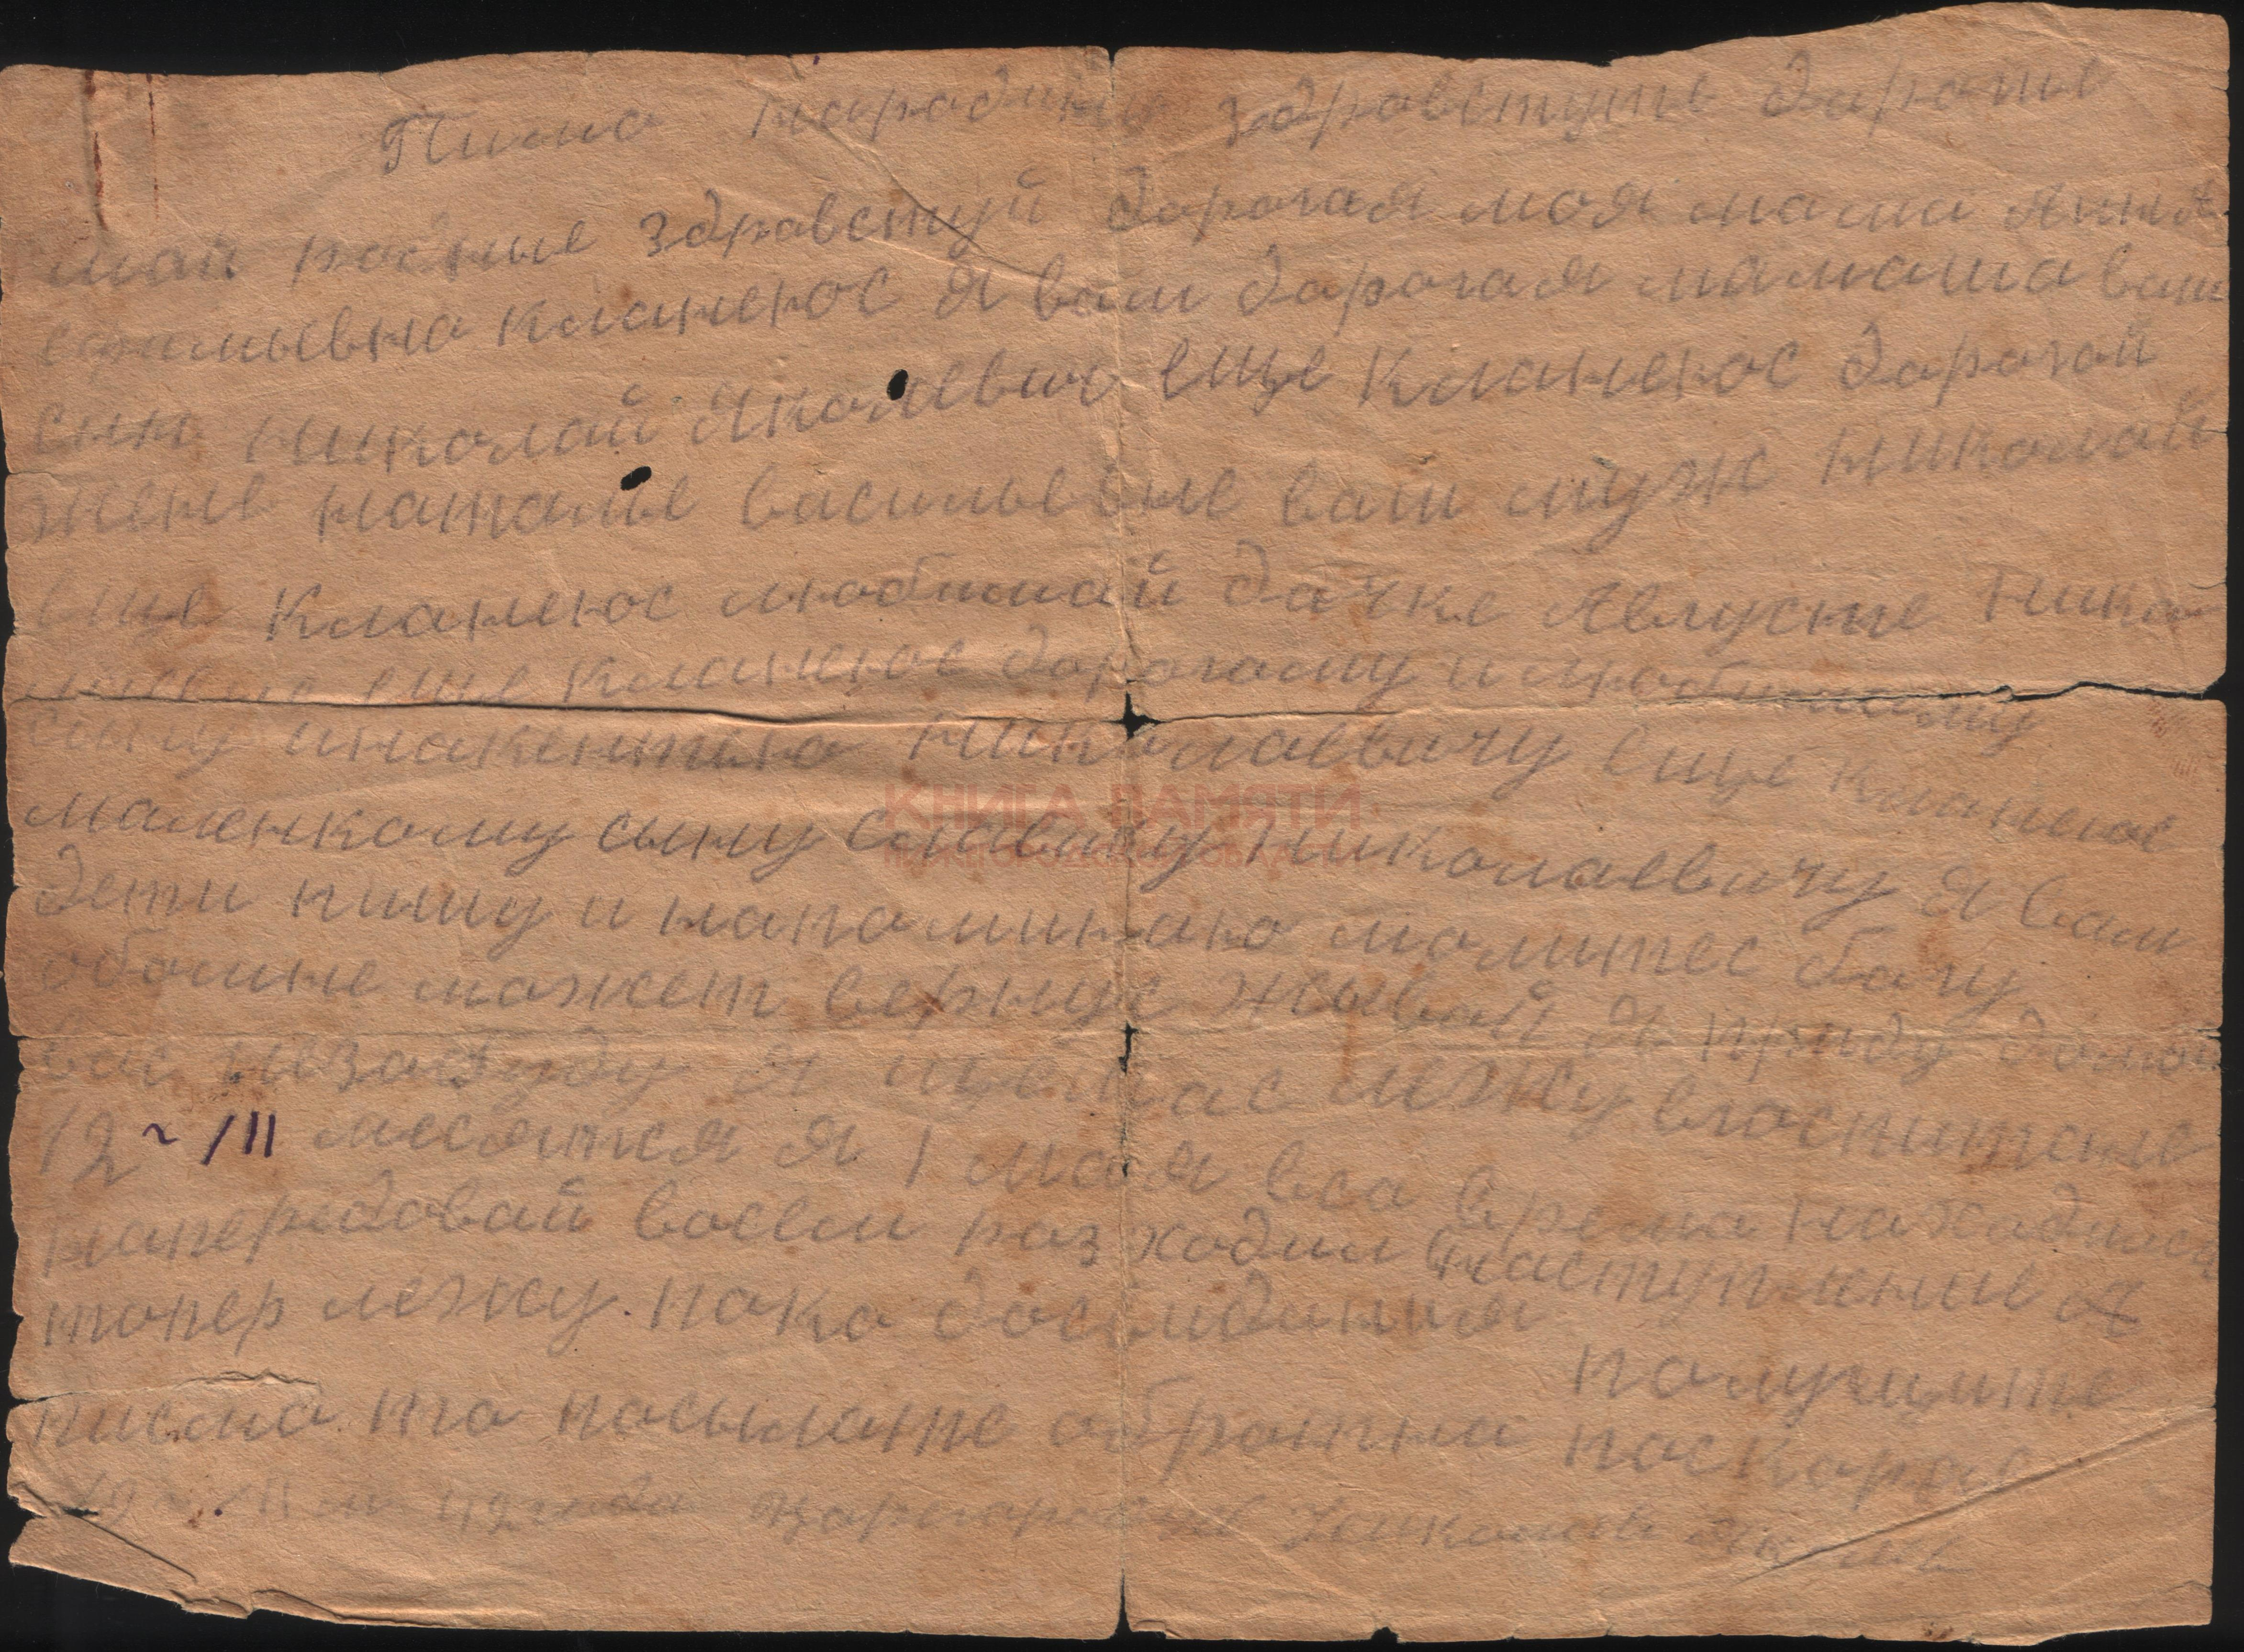 Писмо народину здравствуте дарогие
маи родные здравствуй дорогая моя мамаш Анна
ефимьевна кланеюс я вам дарогая мамаша ваш
сын николай Яколевич еще кланеюс дарогой
жене наталье васильевне ваш муж николай
еще кланеюс любимай дачке Августе Никол
еще кланеюс дорогому и любимаму
сыну инакентию николаевичу еще кланеюс
маленкому сыну славику николаевичу Я вам
дети пишу и напоминаю молитес богу
обомне может вернус жывой Я приду домой
вас незабуду я щас лежу вгоспитале
12 ~ /III месятся я 1 мая всо время находился
напередовай восем раз ходил внаступление Я
топер лежу. пока досвидания
палучите
писмо. то посылате обратна поскорае
12 м 42 года Николай
КНИГА ПАМЯТИ